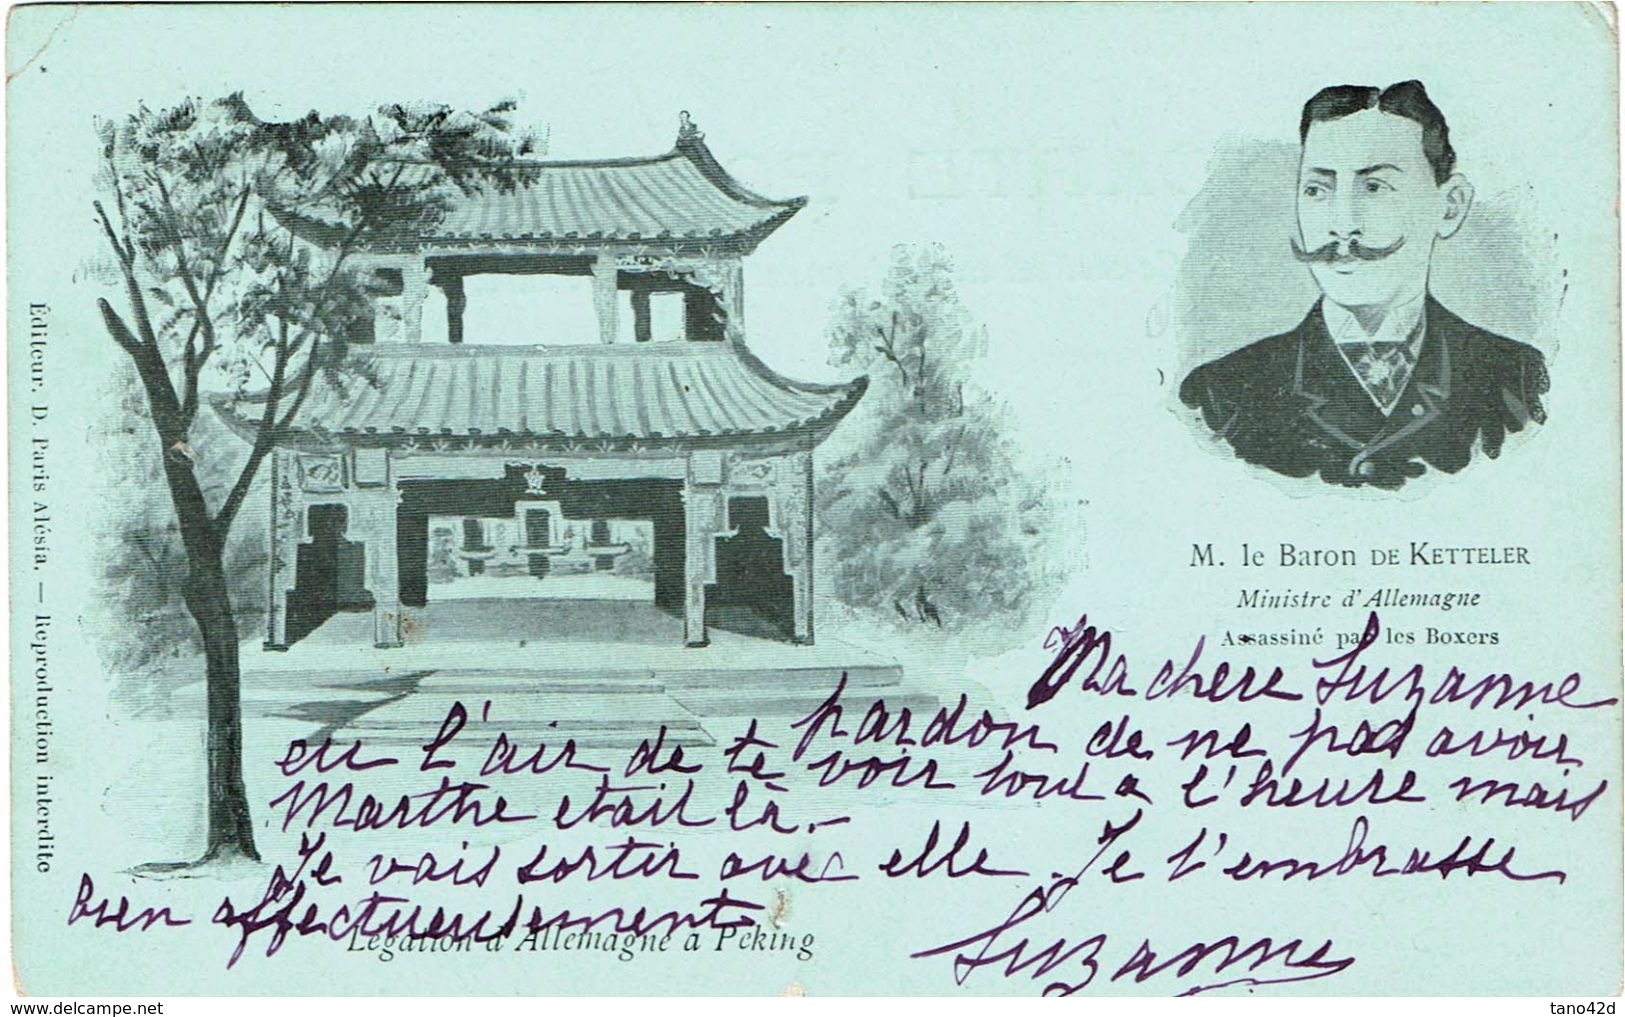 Éditeur. D. Paris Alésia. — Reproduction interdite
M. le Baron DE KETTELER
Ministre d'Allemagne
Assassiné par les Boxers
Ma chere Suzanne
pardon de ne pas avoir
eu l'air de te voir tout a l'heure mais
Marthe etait là.-
Je vais sortir avec elle. Je t'embrasse
bien affectueusement
Suzanne
Légation d'Allemagne à Péking
www.delcampe.net
tano42d